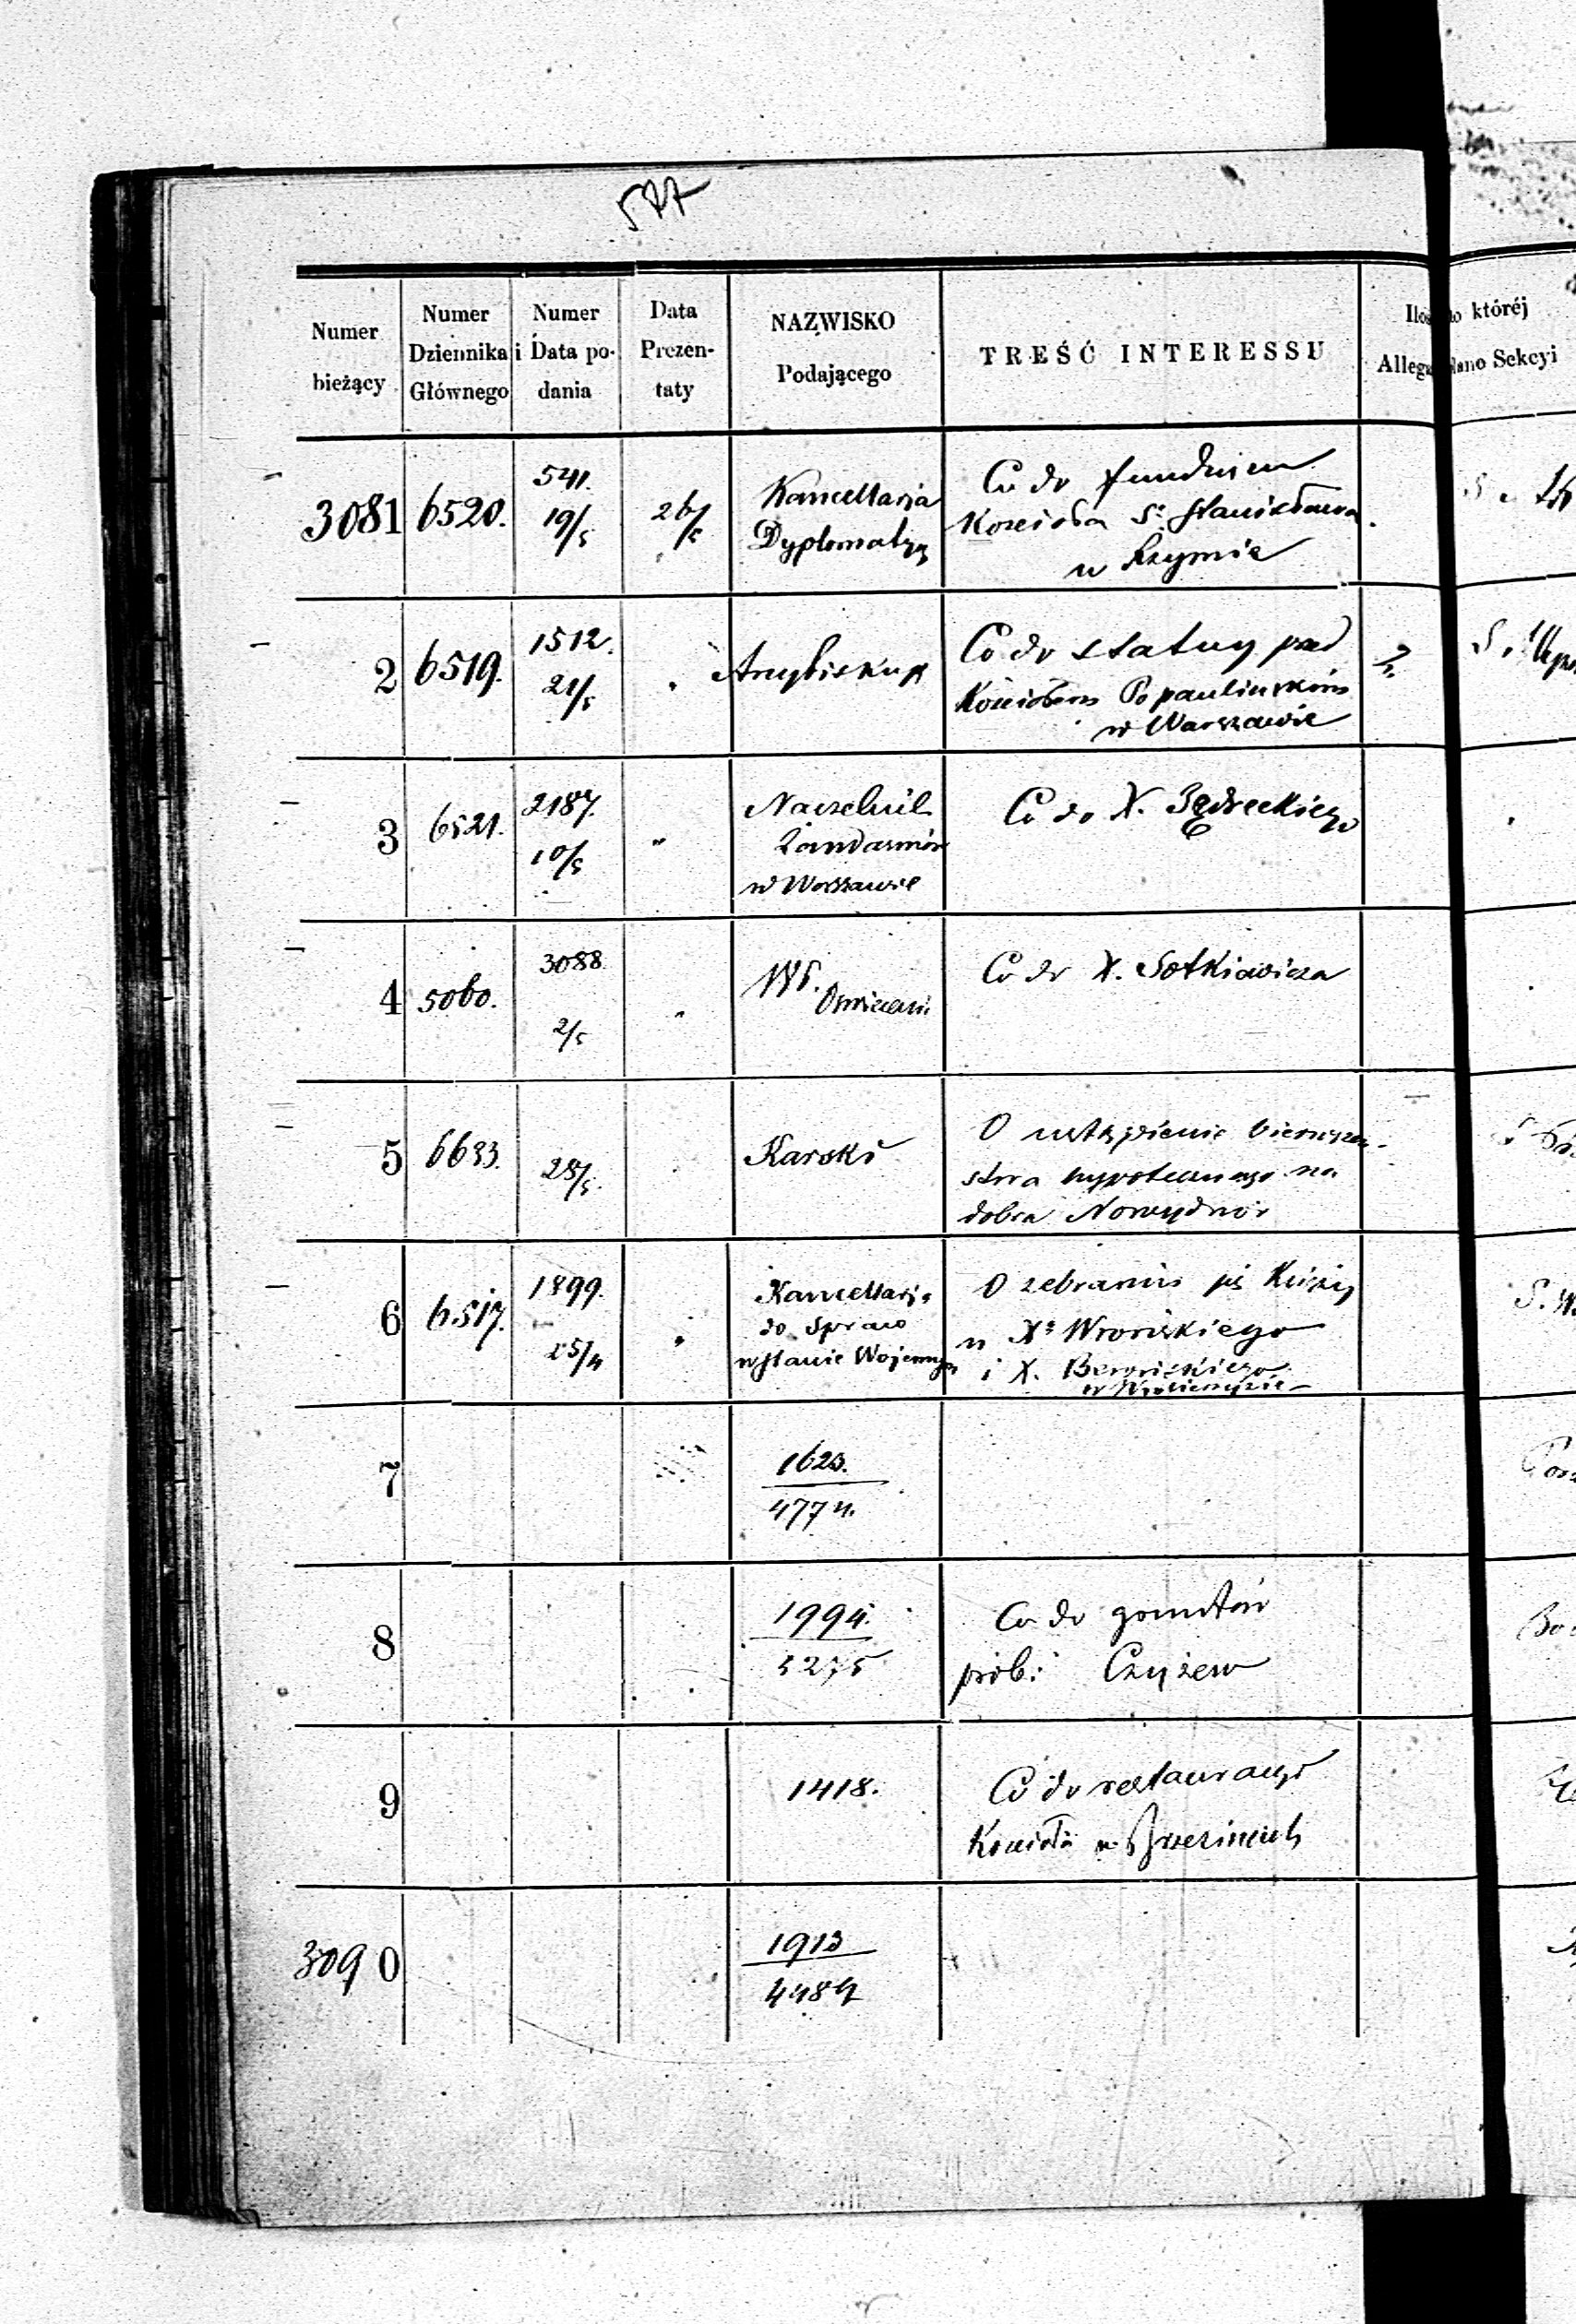 527
Numer bieżący
Numer Dziennika Głównego
Numer i Data podania
Data Prezentaty
NAZWISKO Podającego
TREŚĆ INTERESSU
3081 6520. 541. 19/5 26/5
Kancellarja
Dyplomatyc
Co do funduszu
Kościoła Sº Stanisława
w Rzymie
2 6519. 1512. 21/5 "
Arcybiskup
Co do statuy przed
Kościołem Popaulińskim
w Warszawie
3 6521. 2187. 10/5 "
Naczelnik
Żandarmów
w Warszawie
Co do X.
4 5060. 3088. 2/5 "
Co do X. Sotkiewicza
5 6633. 28/5
Karski
O ustąpienie pierwszeń-
stwa hypotecznego na
dobra Nowydwór
6 6517. 1899. 25/4 "
Kancellarja
do Spraw
w Stanie Wojennym
O zebraniu się Księży
u Xª Wrońskiego
i X.
7
1623.
4774.
8
1994.
5275
Co do gruntów
prob: Czyżew
9
1418.
Co do restauracyi
Kościoła w Brzezinach
3090
1913
4484